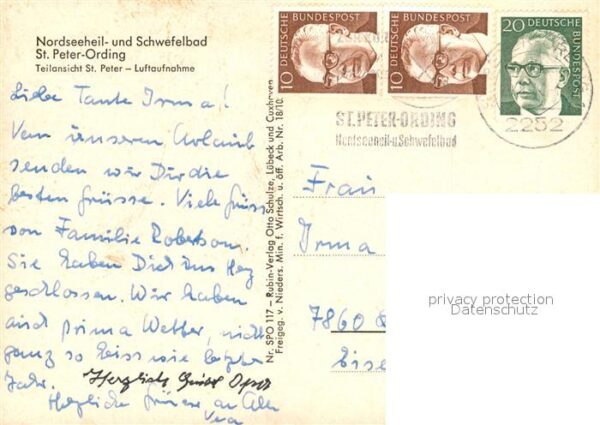 Nordseeheil- und Schwefelbad
St. Peter-Ording
Teilansicht St. Peter – Luftaufnahme
Liebe Tante Irma!
Von unseren Urlaub
senden wir Dir die
besten Grüsse. Viele Grüsse
von Familie Robertson.
Sie haben Dich ins Herz
geschlossen. Wir haben
auch prima Wetter, nicht
ganz so heiss wie letztes
Jahr.
Herzlich Gruss Opa
Herzliche Grüsse an Alle
Vera
Nr. SPO 117 – Rubin-Verlag Otto Schulze, Lübeck und Cuxhaven
Freigeg. v. Nieders. Min. f. Wirtsch. u. öff. Arb. Nr. 18/10
10 DEUTSCHE BUNDESPOST
10 DEUTSCHE BUNDESPOST
20 DEUTSCHE BUNDESPOST
ST. PETER-ORDING
Nordseeheil-u.Schwefelbad
2252
Frau
Irma
7860
Eise
privacy protection
Datenschutz